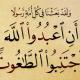 وَلَقَدْ بَعَثْنَا فِي كُلِّ أُمَّةٍ رَّسُولًا
أَنِ اعْبُدُوا اللَّهَ
وَاجْتَنِبُوا الطَّاغُوتَ